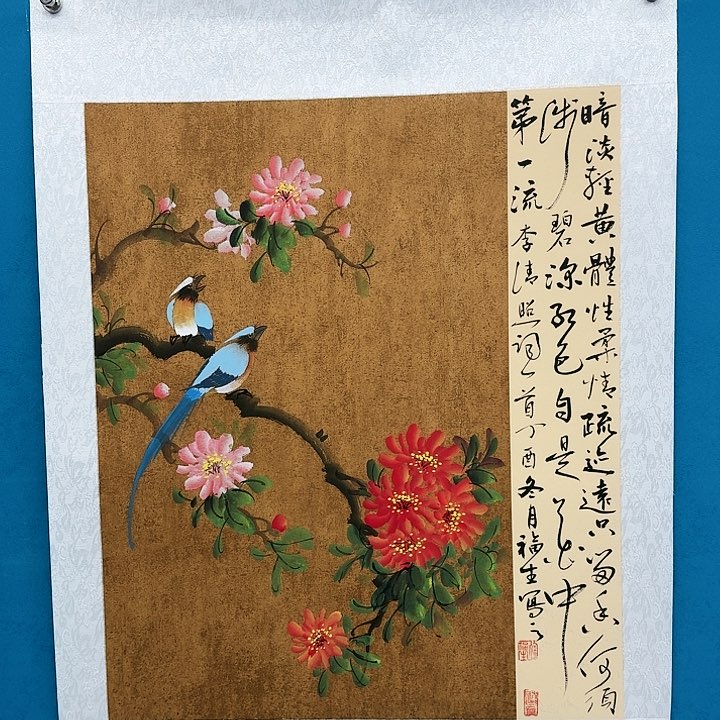 暗淡轻黄體性柔情疏迹遠只留香何須
浅碧深红色自是花中
第一流 李清照詞一首丁酉冬月福生寫之